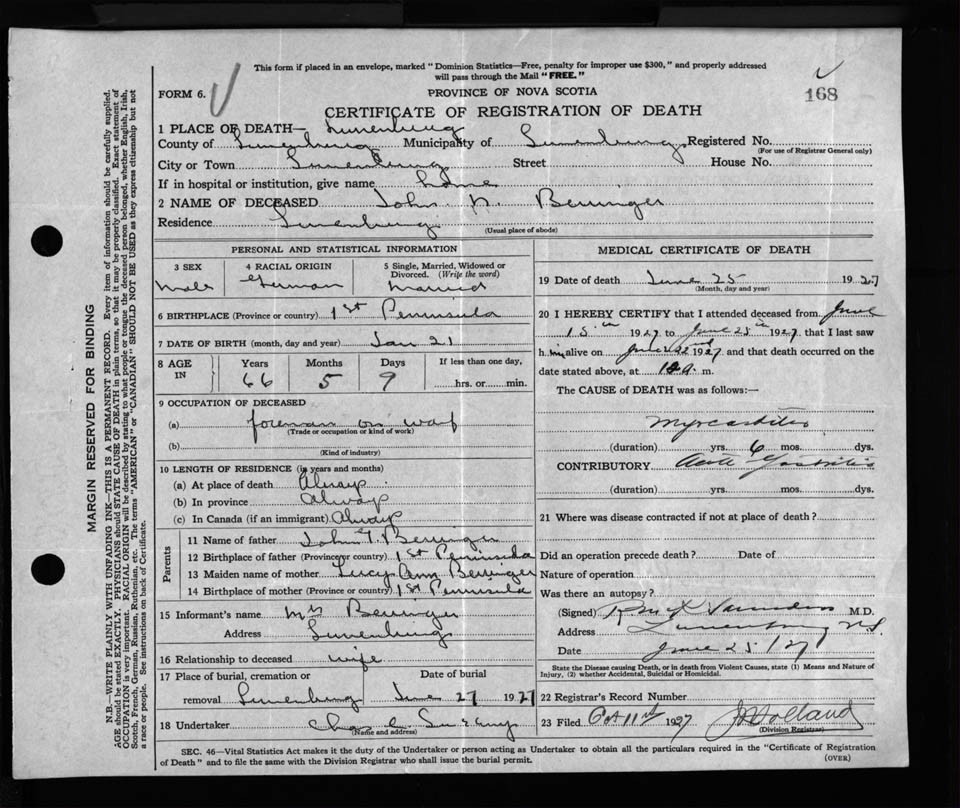 This form if placed in an envelope, marked " Dominion Statistics—Free, penalty for improper use $300," and properly addressed
will pass through the Mail "FREE."
FORM 6.
PROVINCE OF NOVA SCOTIA
168
CERTIFICATE OF REGISTRATION OF DEATH
1 PLACE OF DEATH— Lunenburg
County of Lunenburg Municipality of Lunenburg Registered No.
(For use of Registrar General only)
City or Town Lunenburg Street House No.
If in hospital or institution, give name home
2 NAME OF DECEASED John N. Beringer
Residence Lunenburg
(Usual place of abode)
PERSONAL AND STATISTICAL INFORMATION
3 SEX 4 RACIAL ORIGIN 5 Single, Married, Widowed or
Divorced. (Write the word)
Male German Married
6 BIRTHPLACE (Province or country) 1st Peninsula
7 DATE OF BIRTH (month, day and year) Jan 21
8 AGE IN Years Months Days If less than one day,
66 5 9 hrs. or min.
9 OCCUPATION OF DECEASED
(a) foreman on warf
(Trade or occupation or kind of work)
(b)
(Kind of industry)
10 LENGTH OF RESIDENCE (in years and months)
(a) At place of death Always
(b) In province Always
(c) In Canada (if an immigrant) Always
Parents
11 Name of father John T. Beringer
12 Birthplace of father (Province or country) 1st Peninsula
13 Maiden name of mother Lucy Ann Beringer
14 Birthplace of mother (Province or country) 1st Peninsula
15 Informant's name Mrs Beringer
Address Lunenburg
16 Relationship to deceased wife
17 Place of burial, cremation or Date of burial
removal Lunenburg June 27 1927
18 Undertaker Chas
(Name and address)
MEDICAL CERTIFICATE OF DEATH
19 Date of death June 25 1927
(Month, day and year)
20 I HEREBY CERTIFY that I attended deceased from June
15th 1927 to June 25th 1927. that I last saw
him alive on June 1927 and that death occurred on the
date stated above, at m.
The CAUSE of DEATH was as follows:—
Myocarditis
(duration) yrs. 6 mos. dys.
CONTRIBUTORY Acute Gastritis
(duration) yrs. mos. dys.
21 Where was disease contracted if not at place of death?
Did an operation precede death? Date of
Nature of operation
Was there an autopsy?
(Signed) Saunders M.D.
Address Lunenburg NS.
Date June 25/27
State the Disease causing Death, or in death from Violent Causes, state (1) Means and Nature of
Injury, (2) whether Accidental, Suicidal or Homicidal.
22 Registrar's Record Number
23 Filed Oct 11th 1927 Holland
(Division Registrar)
SEC. 46—Vital Statistics Act makes it the duty of the Undertaker or person acting as Undertaker to obtain all the particulars required in the "Certificate of Registration
of Death" and to file the same with the Division Registrar who shall issue the burial permit.
(OVER)
MARGIN RESERVED FOR BINDING
N.B.—WRITE PLAINLY WITH UNFADING INK—THIS IS A PERMANENT RECORD. Every item of information should be carefully supplied.
AGE should be stated EXACTLY. PHYSICIANS should STATE CAUSE OF DEATH in plain terms, so that it may be properly classified. Exact statement of
OCCUPATION is very important. RACIAL ORIGIN will be described by stating to what people or tongue the deceased person belonged, whether English, Irish,
Scotch, French, German, Russian, Ruthenian, etc. The terms "AMERICAN" or "CANADIAN" SHOULD NOT BE USED as they express citizenship but not
a race or people. See instructions on back of Certificate.